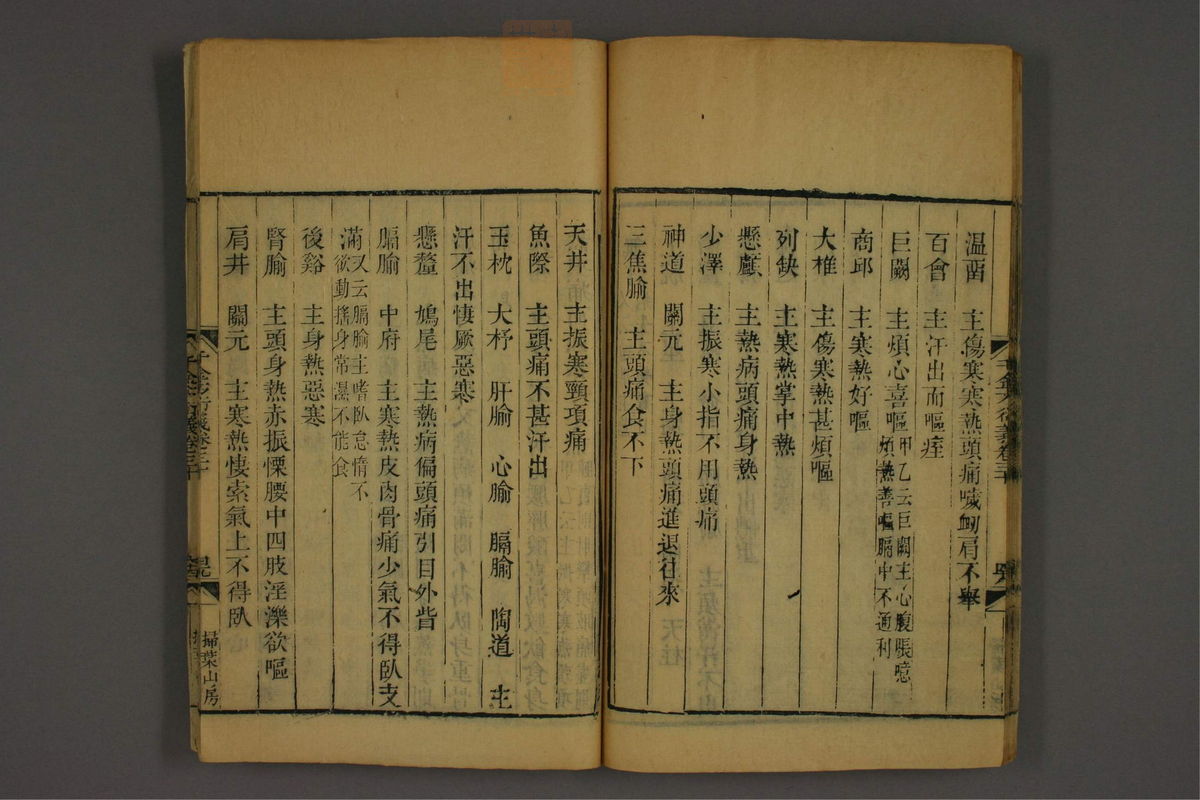 温畱　主傷寒寒熱頭痛噦衂肩不舉
百會　主汗出而嘔痓
巨闕　主煩心喜嘔甲乙云巨闕主心腹脹噫
煩熱善嘔膈中不通利
商邱　主寒熱好嘔
大椎　主傷寒熱甚煩嘔
列缺　主寒熱掌中熱
懸顱　主熱病頭痛身熱
少澤　主振寒小指不用頭痛
神道　關元　主身熱頭痛進退往來
三焦腧　主頭痛食不下
天井　主振寒頸項痛
魚際　主頭痛不甚汗出
玉枕　大杼　肝腧　心腧　膈腧　陶道　主
汗不出悽厥惡寒
懸釐　鳩尾　主熱病偏頭痛引目外眥
膈腧　中府　主寒熱皮肉骨痛少氣不得臥支
滿又云膈腧主嗜臥怠惰不
欲動搖身常濕不能食
後谿　主身熱惡寒
腎腧　主頭身熱赤振慄腰中四肢淫濼欲嘔
肩井　關元　主寒熱悽索氣上不得臥
掃葉山房